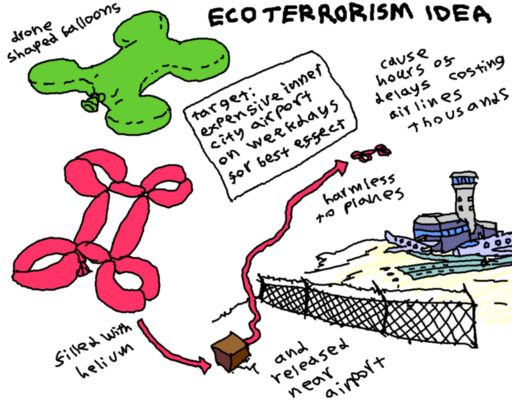 ECOTERRORISM IDEA
drone
shaped balloons
target:
expensive inner
city airport
on weekdays
for best effect
cause
hours of
delays costing
airlines
thousands
harmless
to planes
filled with
helium
and
released
near
airport